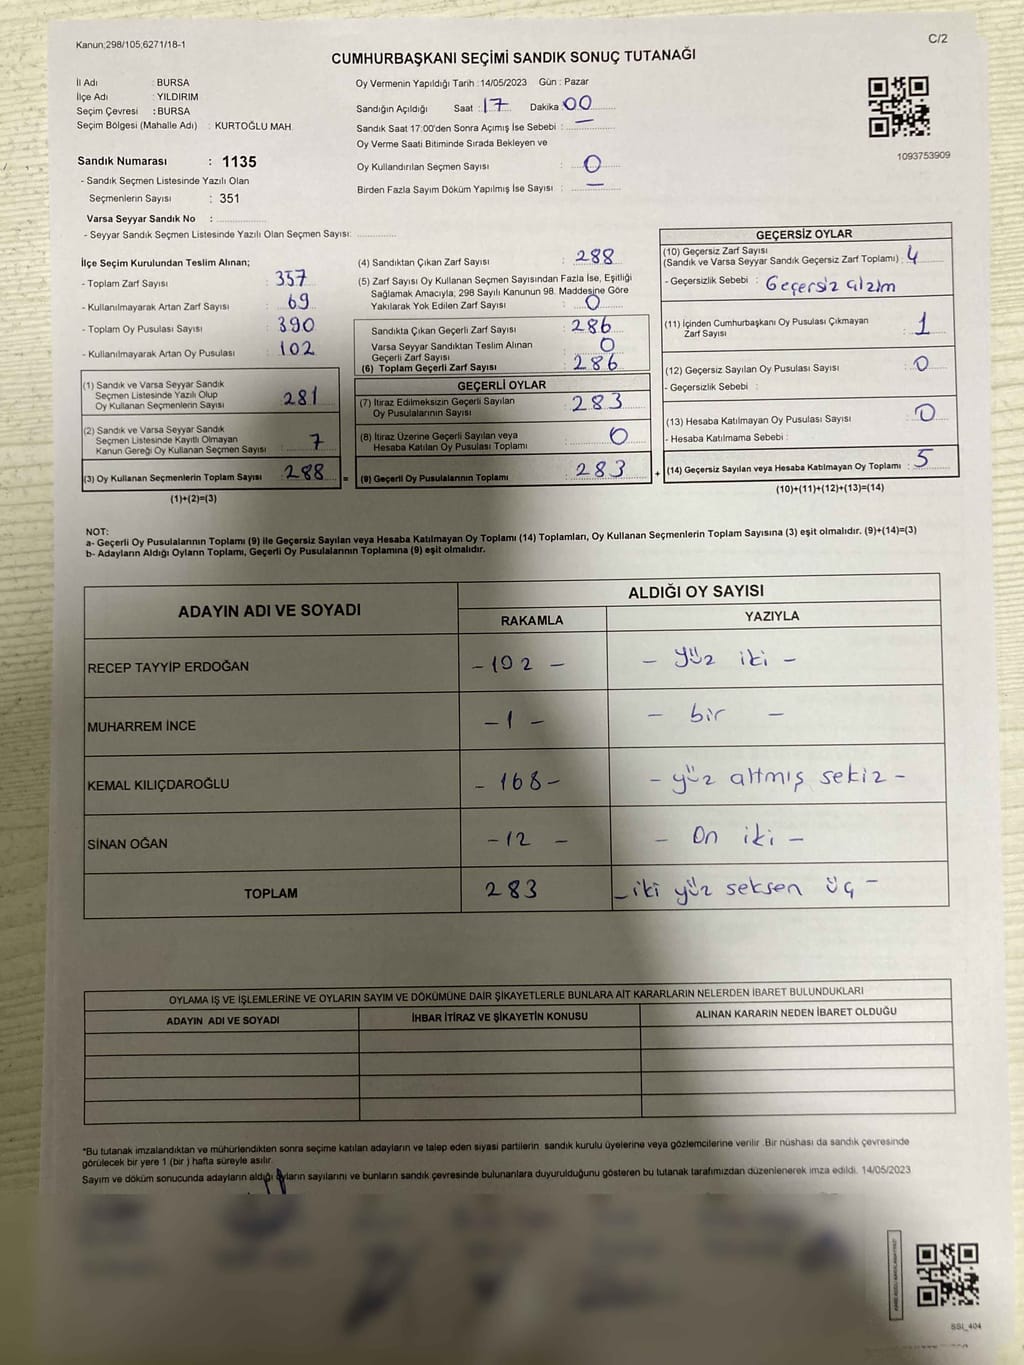 Kanun;298/105,6271/18-1
C/2
CUMHURBAŞKANI SEÇİMİ SANDIK SONUÇ TUTANAĞI
İl Adı : BURSA
İlçe Adı : YILDIRIM
Seçim Çevresi : BURSA
Seçim Bölgesi (Mahalle Adı) : KURTOĞLU MAH.
Sandık Numarası : 1135
- Sandık Seçmen Listesinde Yazılı Olan
Seçmenlerin Sayısı : 351
Varsa Seyyar Sandık No :
- Seyyar Sandık Seçmen Listesinde Yazılı Olan Seçmen Sayısı:
Oy Vermenin Yapıldığı Tarih :14/05/2023 Gün : Pazar
Sandığın Açıldığı Saat : 17 Dakika 00
Sandık Saat 17:00'den Sonra Açımış İse Sebebi : —
Oy Verme Saati Bitiminde Sırada Bekleyen ve
Oy Kullandırılan Seçmen Sayısı : 0
Birden Fazla Sayım Döküm Yapılmış İse Sayısı : —
1093753909
İlçe Seçim Kurulundan Teslim Alınan;
- Toplam Zarf Sayısı : 357
- Kullanılmayarak Artan Zarf Sayısı : 69
- Toplam Oy Pusulası Sayısı : 390
- Kullanılmayarak Artan Oy Pusulası : 102
(1) Sandık ve Varsa Seyyar Sandık
Seçmen Listesinde Yazılı Olup
Oy Kullanan Seçmenlerin Sayısı : 281
(2) Sandık ve Varsa Seyyar Sandık
Seçmen Listesinde Kayıtlı Olmayan
Kanun Gereği Oy Kullanan Seçmen Sayısı : 7
(3) Oy Kullanan Seçmenlerin Toplam Sayısı : 288
(1)+(2)=(3)
(4) Sandıktan Çıkan Zarf Sayısı : 288
(5) Zarf Sayısı Oy Kullanan Seçmen Sayısından Fazla İse, Eşitliği
Sağlamak Amacıyla; 298 Sayılı Kanunun 98. Maddesine Göre
Yakılarak Yok Edilen Zarf Sayısı : 0
Sandıkta Çıkan Geçerli Zarf Sayısı : 286
Varsa Seyyar Sandıktan Teslim Alınan
Geçerli Zarf Sayısı : 0
(6) Toplam Geçerli Zarf Sayısı : 286
=
GEÇERLİ OYLAR
(7) İtiraz Edilmeksizin Geçerli Sayılan
Oy Pusulalarının Sayısı : 283
(8) İtiraz Üzerine Geçerli Sayılan veya
Hesaba Katılan Oy Pusulası Toplamı : 0
(9) Geçerli Oy Pusulalarının Toplamı : 283
+
GEÇERSİZ OYLAR
(10) Geçersiz Zarf Sayısı
(Sandık ve Varsa Seyyar Sandık Geçersiz Zarf Toplamı) : 4
- Geçersizlik Sebebi : Geçersiz
(11) İçinden Cumhurbaşkanı Oy Pusulası Çıkmayan
Zarf Sayısı : 1
(12) Geçersiz Sayılan Oy Pusulası Sayısı : 0
- Geçersizlik Sebebi :
(13) Hesaba Katılmayan Oy Pusulası Sayısı : 0
- Hesaba Katılmama Sebebi :
(14) Geçersiz Sayılan veya Hesaba Katılmayan Oy Toplamı : 5
(10)+(11)+(12)+(13)=(14)
NOT:
a- Geçerli Oy Pusulalarının Toplamı (9) ile Geçersiz Sayılan veya Hesaba Katılmayan Oy Toplamı (14) Toplamları, Oy Kullanan Seçmenlerin Toplam Sayısına (3) eşit olmalıdır. (9)+(14)=(3)
b- Adayların Aldığı Oyların Toplamı, Geçerli Oy Pusulalarının Toplamına (9) eşit olmalıdır.
ADAYIN ADI VE SOYADI
ALDIĞI OY SAYISI
RAKAMLA YAZIYLA
RECEP TAYYİP ERDOĞAN - 102 - - yüz iki -
MUHARREM İNCE - 1 - - bir -
KEMAL KILIÇDAROĞLU - 168 - - yüz altmış sekiz -
SİNAN OĞAN - 12 - - On iki -
TOPLAM 283 - iki yüz seksen üç -
OYLAMA İŞ VE İŞLEMLERİNE VE OYLARIN SAYIM VE DÖKÜMÜNE DAİR ŞİKAYETLERLE BUNLARA AİT KARARLARIN NELERDEN İBARET BULUNDUKLARI
ADAYIN ADI VE SOYADI İHBAR İTİRAZ VE ŞİKAYETİN KONUSU ALINAN KARARIN NEDEN İBARET OLDUĞU
*Bu tutanak imzalandıktan ve mühürlendikten sonra seçime katılan adayların ve talep eden siyasi partilerin sandık kurulu üyelerine veya gözlemcilerine verilir. Bir nüshası da sandık çevresinde
görülecek bir yere 1 (bir ) hafta süreyle asılır.
Sayım ve döküm sonucunda adayların aldığı oyların sayılarını ve bunların sandık çevresinde bulunanlara duyurulduğunu gösteren bu tutanak tarafımızdan düzenlenerek imza edildi. 14/05/2023
SSI_404